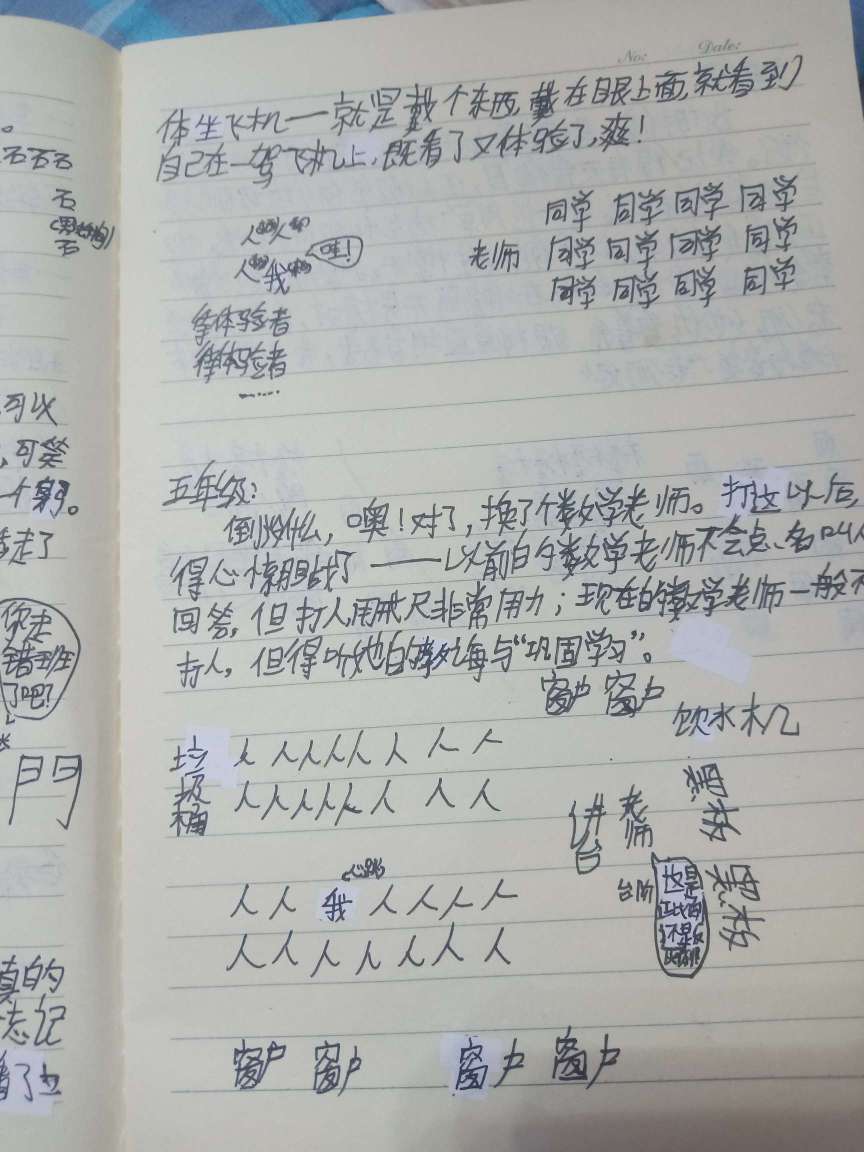 No: Date:
体坐飞机——就是戴个东西,戴在眼上面,就看到
自己在一驾飞机上,既看了又体验了,爽!
同学 同学 同学 同学
人 人 哇!
老师 同学 同学 同学 同学
人 我
同学 同学 同学 同学
体验者
体验者
……
五年级:
倒没什么,噢!对了,换了个数学老师。打这以后,
得心惊胆战了——以前的数学老师不会点名叫人
回答,但打人用戒尺非常用力;现在的数学老师一般不
打人,但得听她的教诲与“巩固学习”。
窗户 窗户
饮水机
垃圾桶
人 人 人 人 人 人 人 人
人 人 人 人 人 人 人 人
讲台
老师
黑板
黑板
人 人 我 人 人 人 人
台阶
这是
正比例
不是反
人 人 人 人 人 人 人
窗户 窗户 窗户 窗户
。
石石石
石
石
可以
,可笑
一个
走了
你走
错班
了吧?
門
真的
忘记
看了